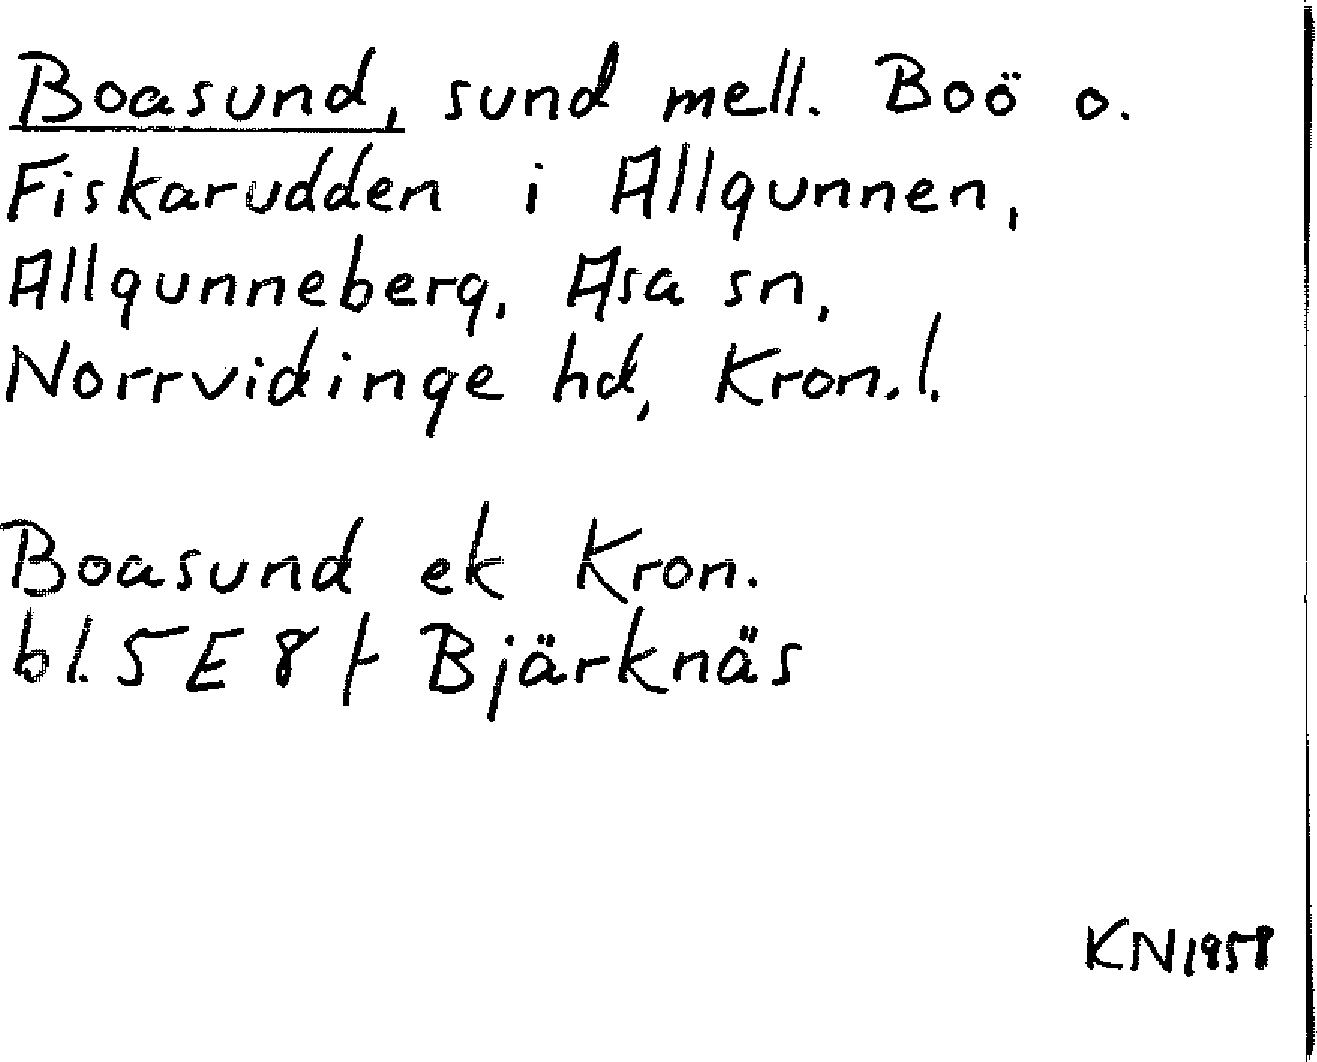 Boasund, sund mell. Boö o.
Fiskarudden i Allgunnen,
Allgunneberg, Asa sn,
Norrvidinge hd, Kron.l.
Boasund ek Kron.
bl. 5E8f Bjärknäs
KN 1958